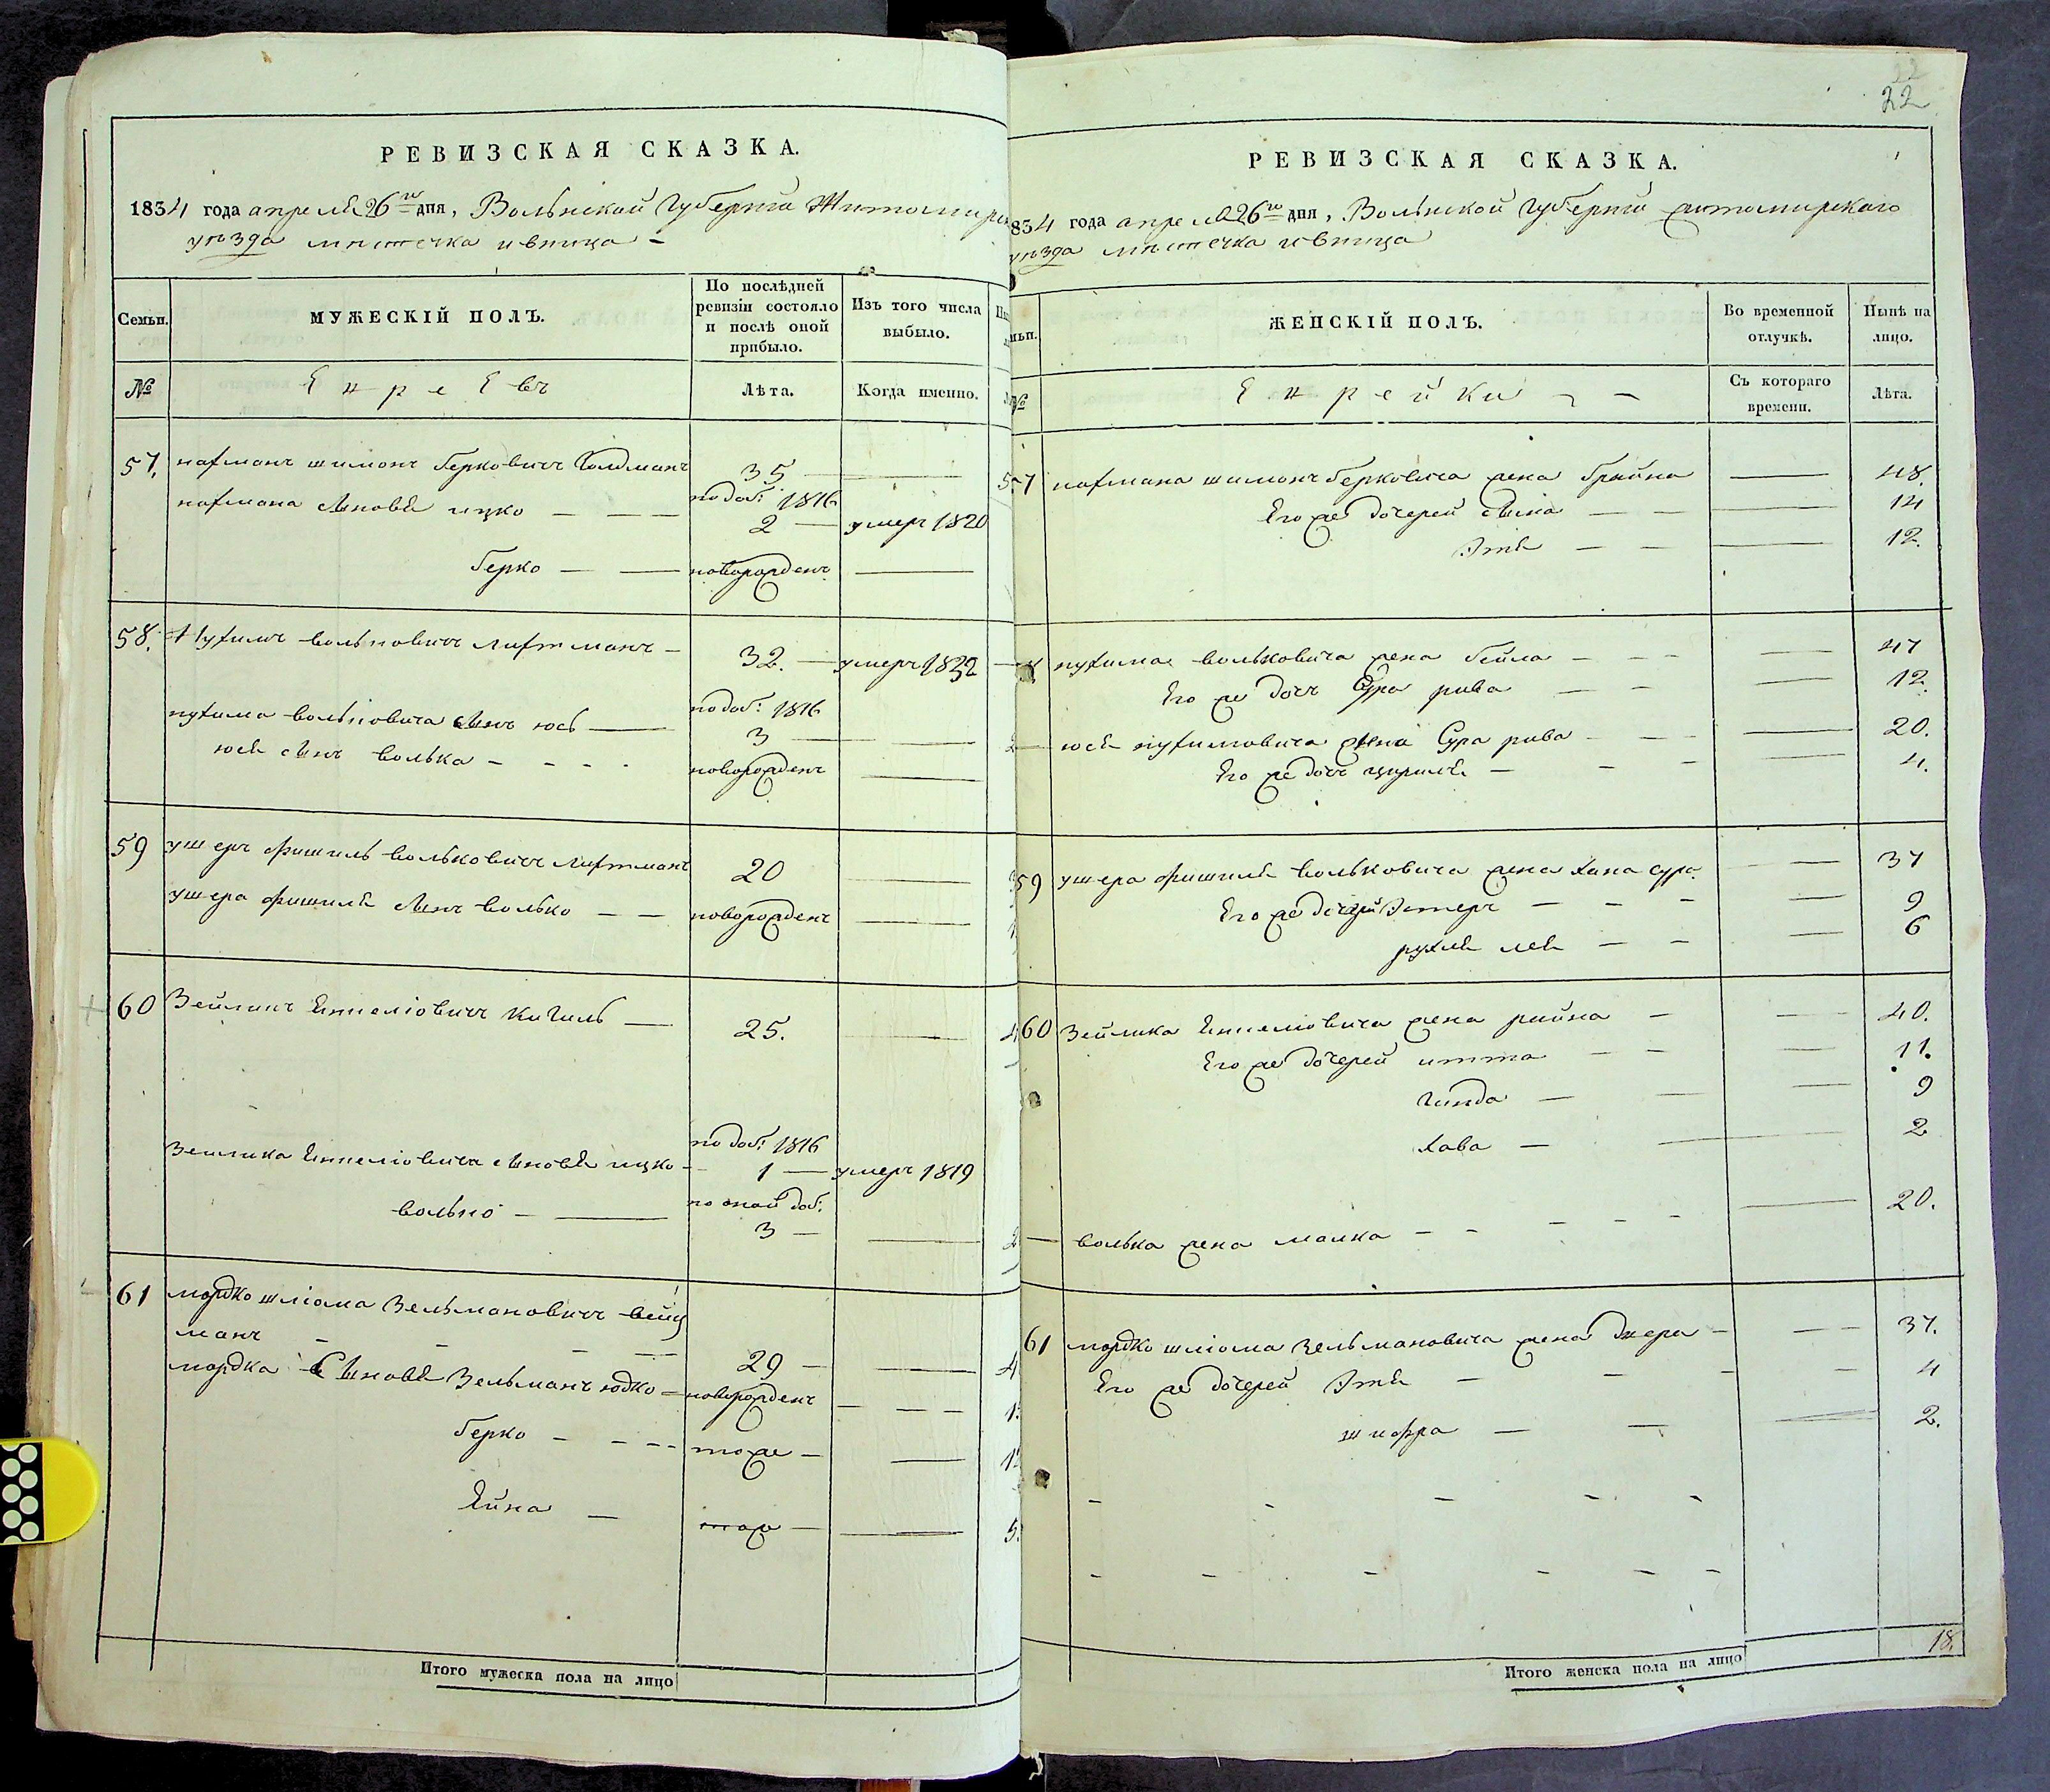 РЕВИЗСКАЯ СКАЗКА.
1834 года апреля 26го дня, Волынской Губернiи Житомирс
уѣзда мѣстечка ивница
Семьи.
МУЖЕСКІЙ ПОЛЪ.
По послѣдней ревизіи состояло и послѣ оной прибыло.
Изъ того числа выбыло.
№
Евреевъ
Лѣта.
Когда именно.
57. нахманъ шимонъ Берковичъ Голдманъ 35
нахмана сыновя ицко по доб: 1816 2 умеръ 1820
Берко новорожденъ
58. Нухимъ вольковичъ лихтманъ 32. умеръ 1832
нухима вольковича сынъ юсь по доб: 1816 3
юся сынъ волька новорожденъ
59 ушеръ фишиль вольковичъ лихтманъ 20
ушера фишиля сынъ волько новорожденъ
60 Зейликъ 25.
Зейлика сыновя ицко по доб: 1816 1 умеръ 1819
волько по оной доб. 3
61 мордко шліома Зельмановичъ вейц
манъ 29
мордка Сыновя Зельманъ юдко новорожденъ
Берко тоже
тоже
Итого мужеска пола на лицо
22
РЕВИЗСКАЯ СКАЗКА.
834 года апреля 26го дня, Волынской Губернiи житомирскаго
уѣзда мѣстечка ивница
ЖЕНСКІЙ ПОЛЪ.
Во временной отлучкѣ.
Нынѣ на лицо.
№
Еврейки
Съ котораго времени.
Лѣта.
57 нахмана шимонъ Берковича жена Брайна 48.
Его же дочерей 14
Этя 12.
нухима вольковича жена Бейла 47
Его же дочъ Сура рива 12.
юся нухимовича жена Сура рива 20.
Его же дочъ 4.
59 ушера фишиля вольковича жена хана сура 37
Его же дочерей Эстеръ 9
рухля лея 6
60 Зейлика жена райна 40.
Его же дочерей итта 11.
Гинда 9
хава 2
волька жена малка 20.
61 мордко шліома Зельмановича жена двера 37.
Его же дочерей Этя 4
шифра 2.
18.
Итого женска пола на лицо